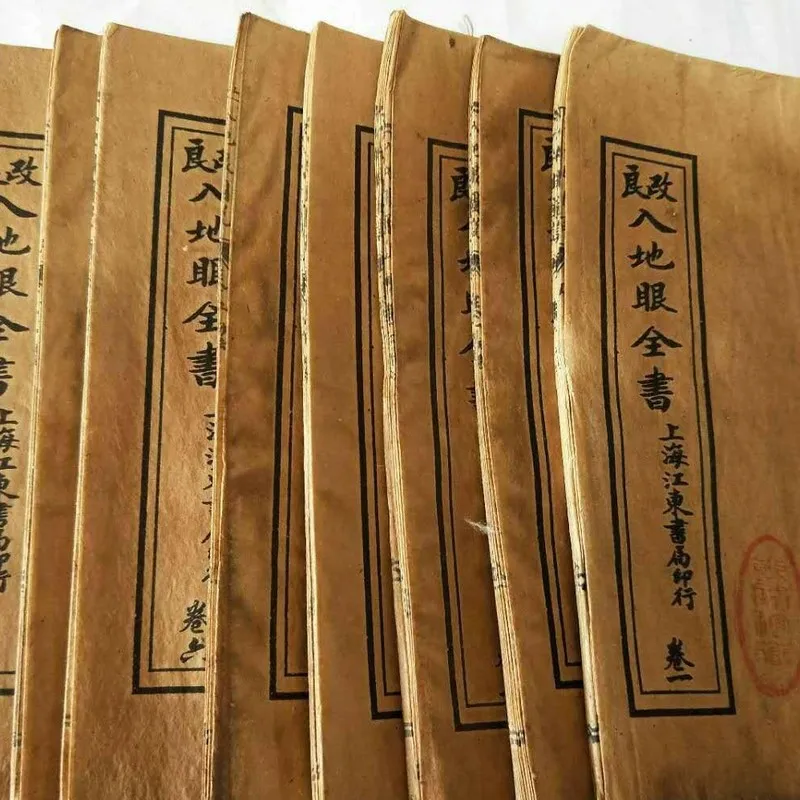 改良
入地眼全書
上海江東書局印行
卷一
良
良
改良
入地眼全書
卷六
改良
入地眼全書
上海江東書局印行